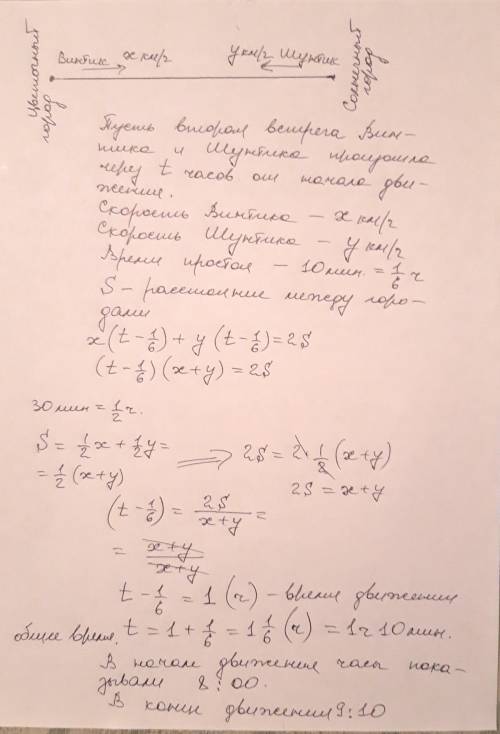 Цветочный
город
Винтик x км/ч
y км/ч Шунтик
Солнечный
город
Пусть вторая встреча Вин-
тика и Шунтика произошла
через t часов от начала дви-
жения.
Скорость Винтика – x км/ч
Скорость Шунтика – y км/ч
Время простоя – 10 мин. = 1/6 ч
S – расстояние между горо-
дами
x(t – 1/6) + y(t – 1/6) = 2S
(t – 1/6)(x+y) = 2S
30 мин = 1/2 ч.
S = 1/2 x + 1/2 y =
= 1/2 (x+y)
⟹ 2S = 2·1/2 (x+y)
2S = x+y
(t – 1/6) = 2S/(x+y) =
= (x+y)/(x+y)
t – 1/6 = 1 (ч) – время движения
общее время. t = 1 + 1/6 = 1 1/6 (ч) = 1ч 10 мин.
В начале движения часы пока-
зывали 8:00.
В конце движения 9:10